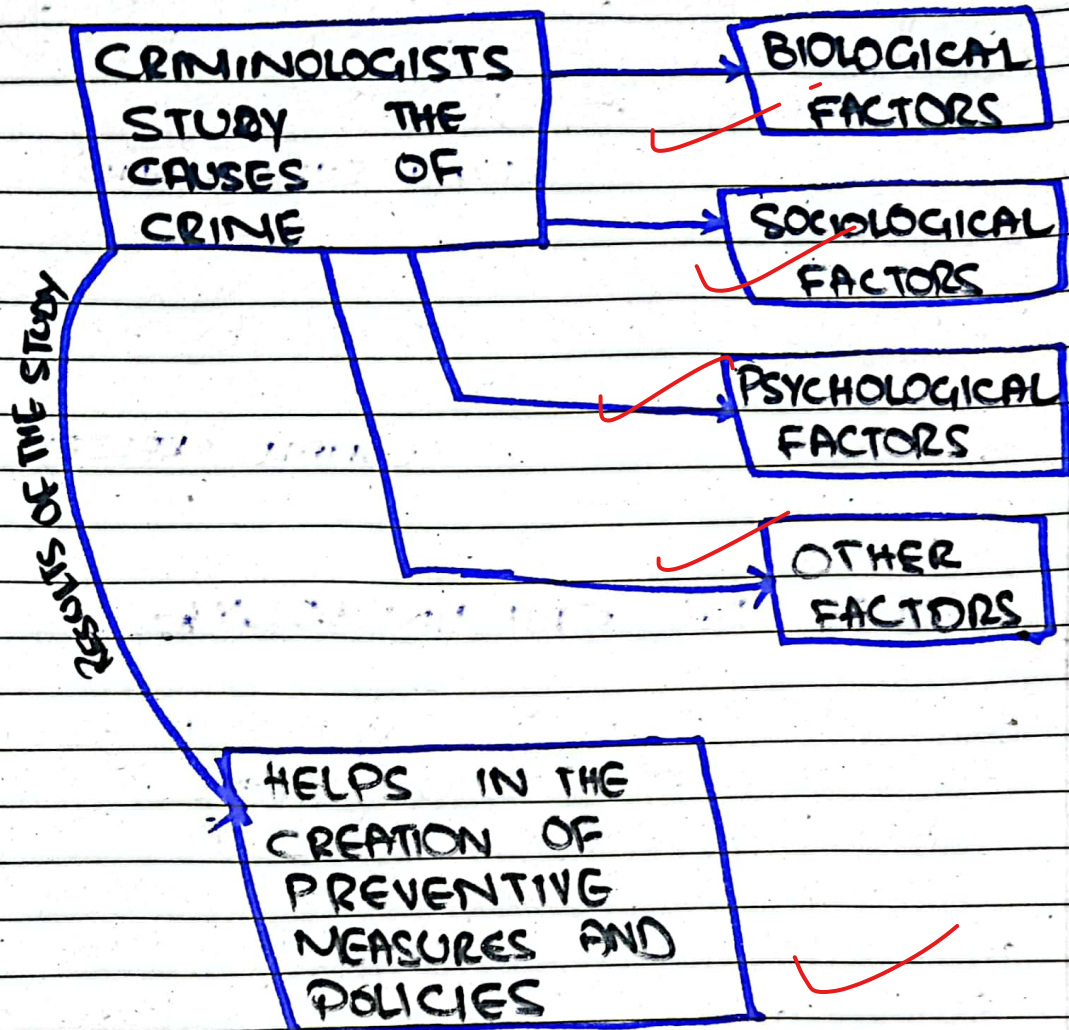 CRIMINOLOGISTS
STUDY THE
CAUSES OF
CRIME
BIOLOGICAL
FACTORS
SOCIOLOGICAL
FACTORS
PSYCHOLOGICAL
FACTORS
OTHER
FACTORS
RESULTS OF THE STUDY
HELPS IN THE
CREATION OF
PREVENTIVE
MEASURES AND
POLICIES